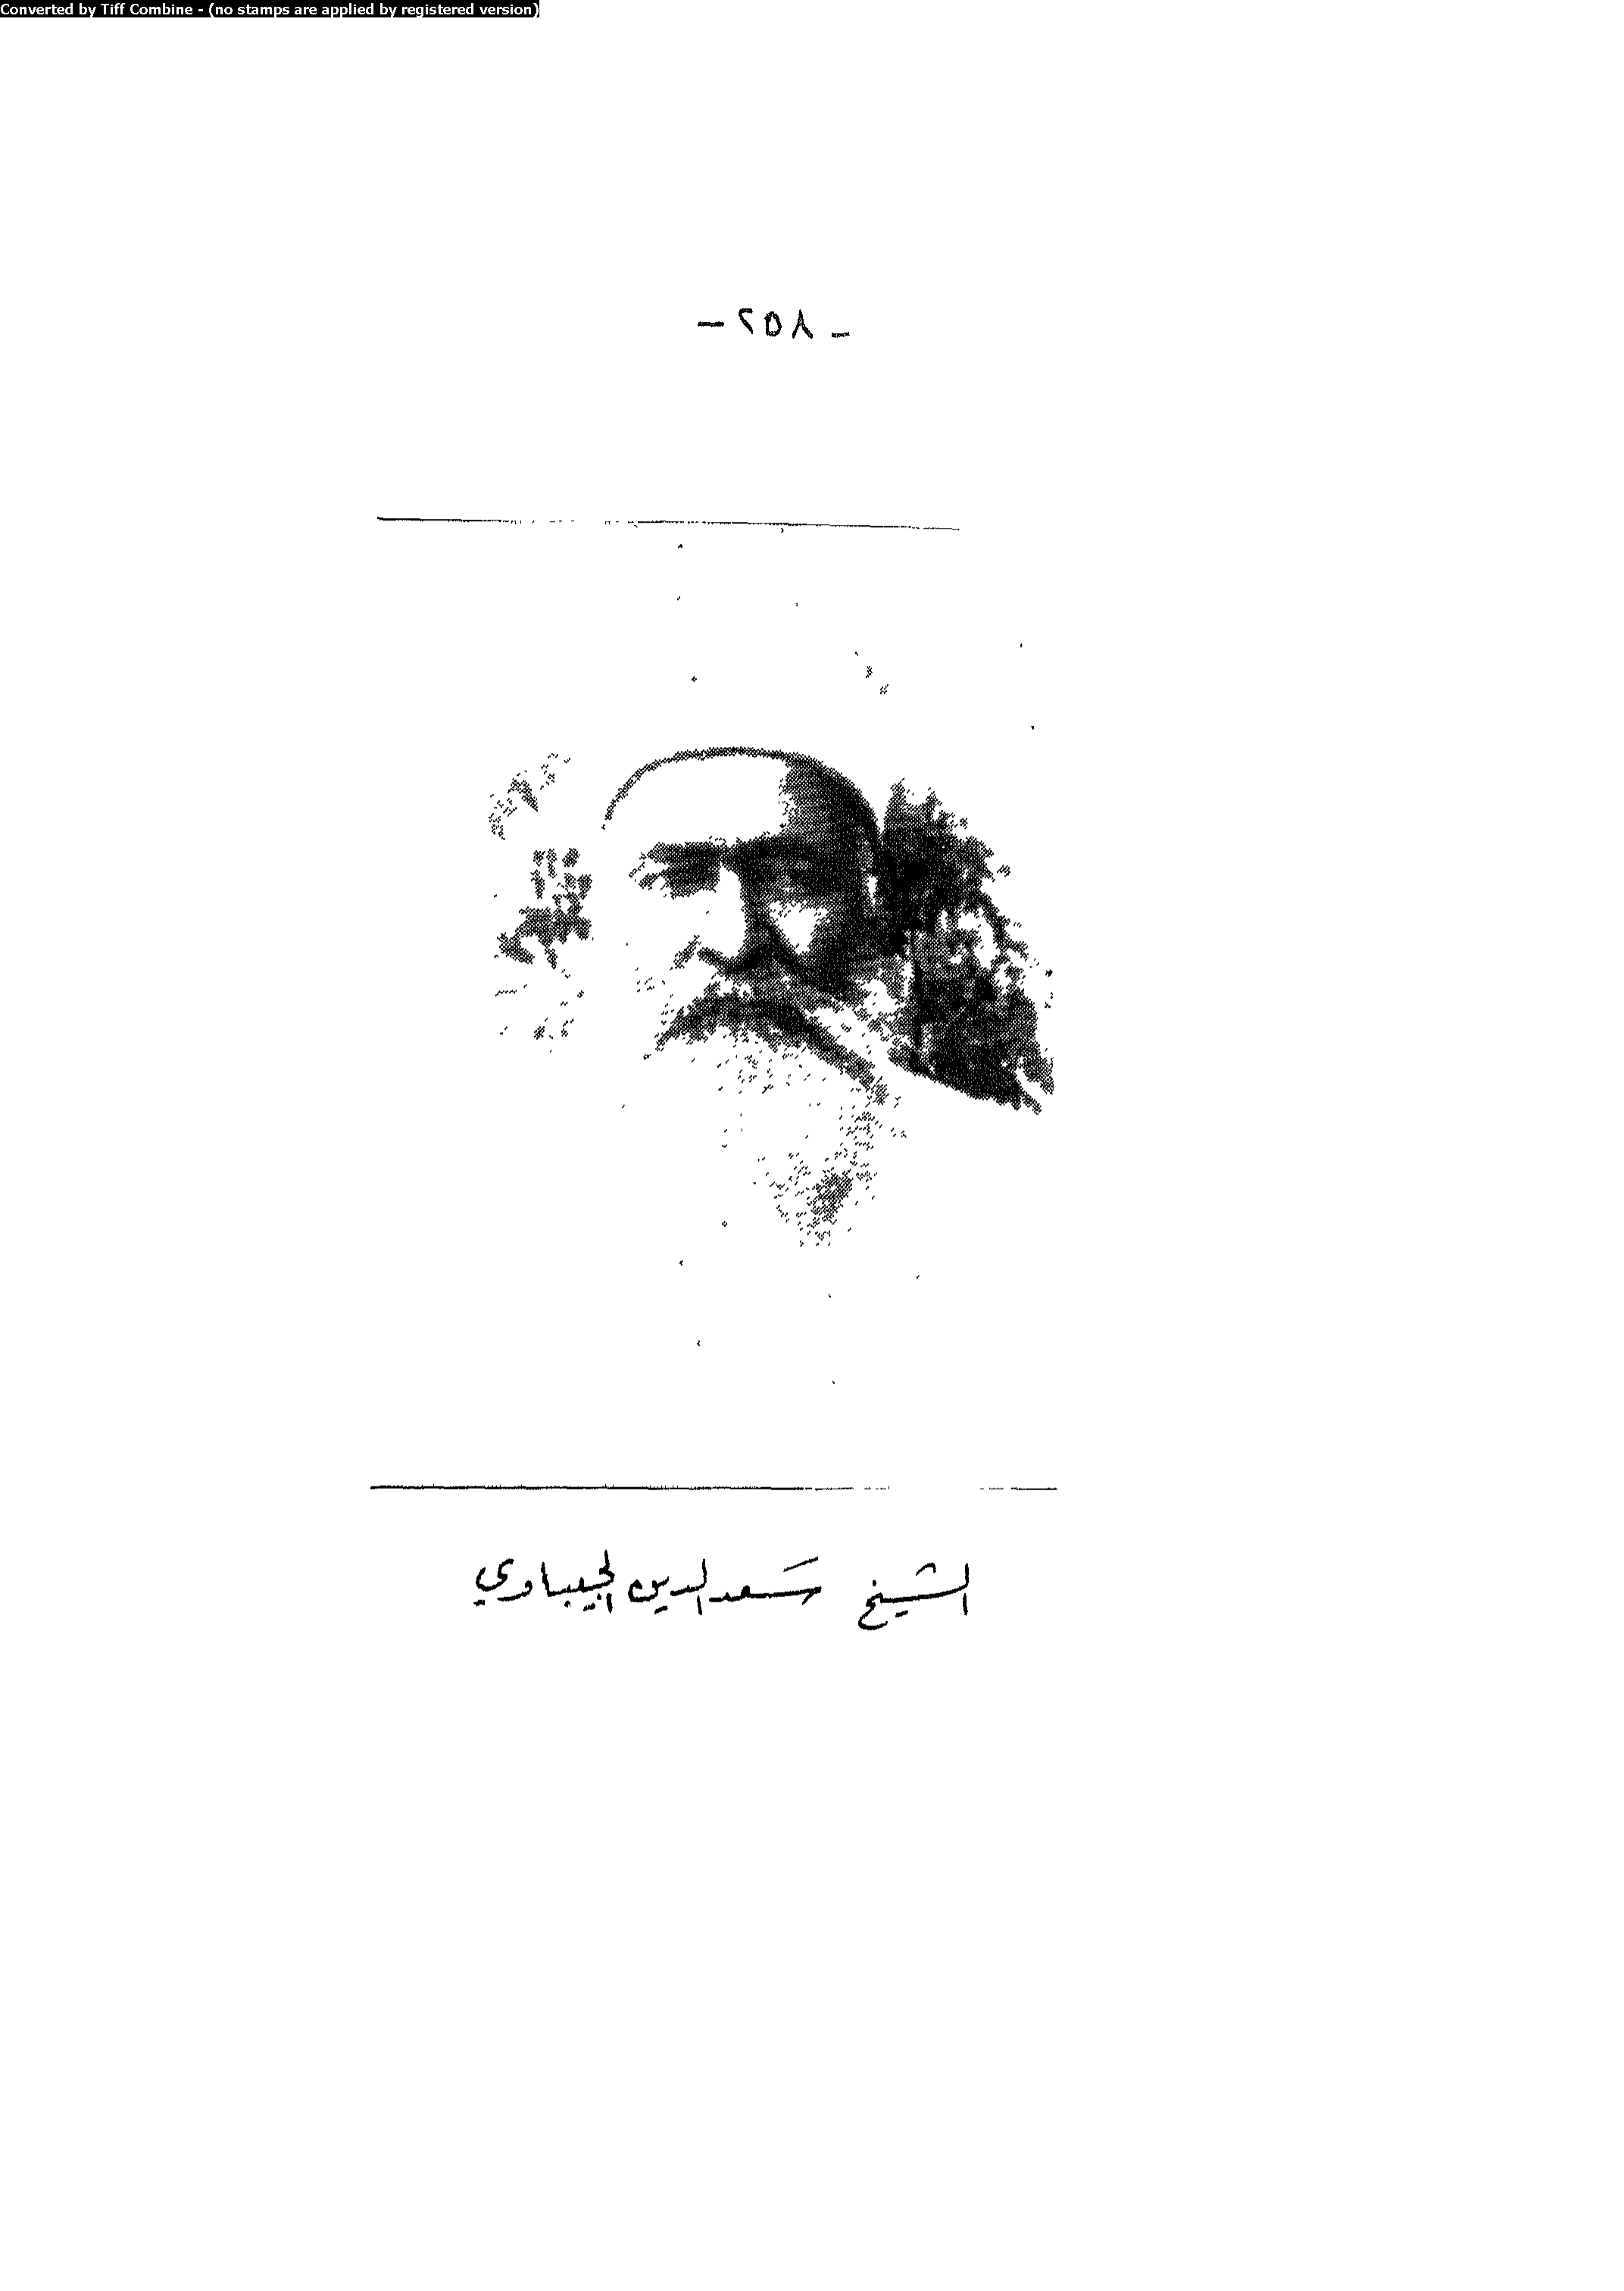 Converted by Tiff Combine - (no stamps are applied by registered version)
- ٢٥٨ -
الشيخ سعد الدين الجيباوي